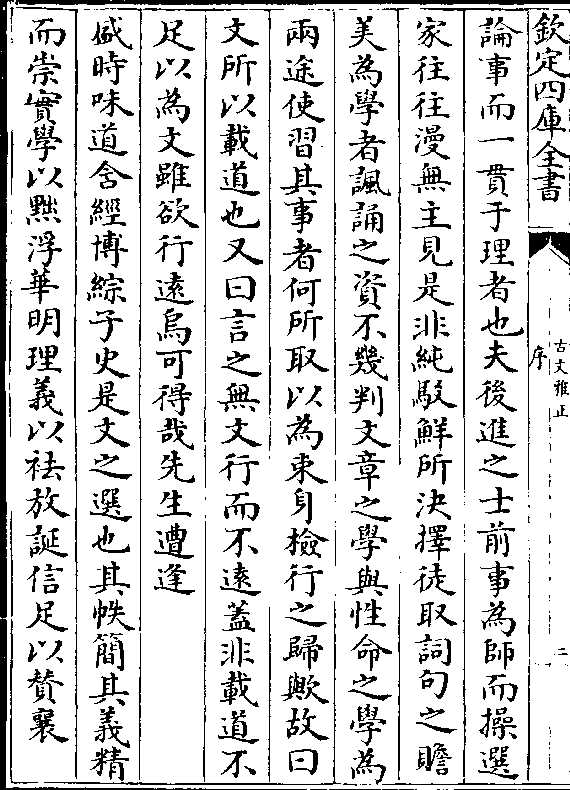 欽定四庫全書
古文雅正
序
二
論事而一貫于理者也夫後進之士前事為師而操選
家往往漫無主見是非純駁鮮所決擇徒取詞句之贍
美為學者諷誦之資不幾判文章之學與性命之學為
兩途使習其事者何所取以為束身檢行之歸歟故曰
文所以載道也又曰言之無文行而不遠蓋非載道不
足以為文雖欲行遠烏可得哉先生遭逢
盛時味道含經博綜子史是文之選也其帙簡其義精
而崇實學以黜浮華明理義以袪放誕信足以贊襄